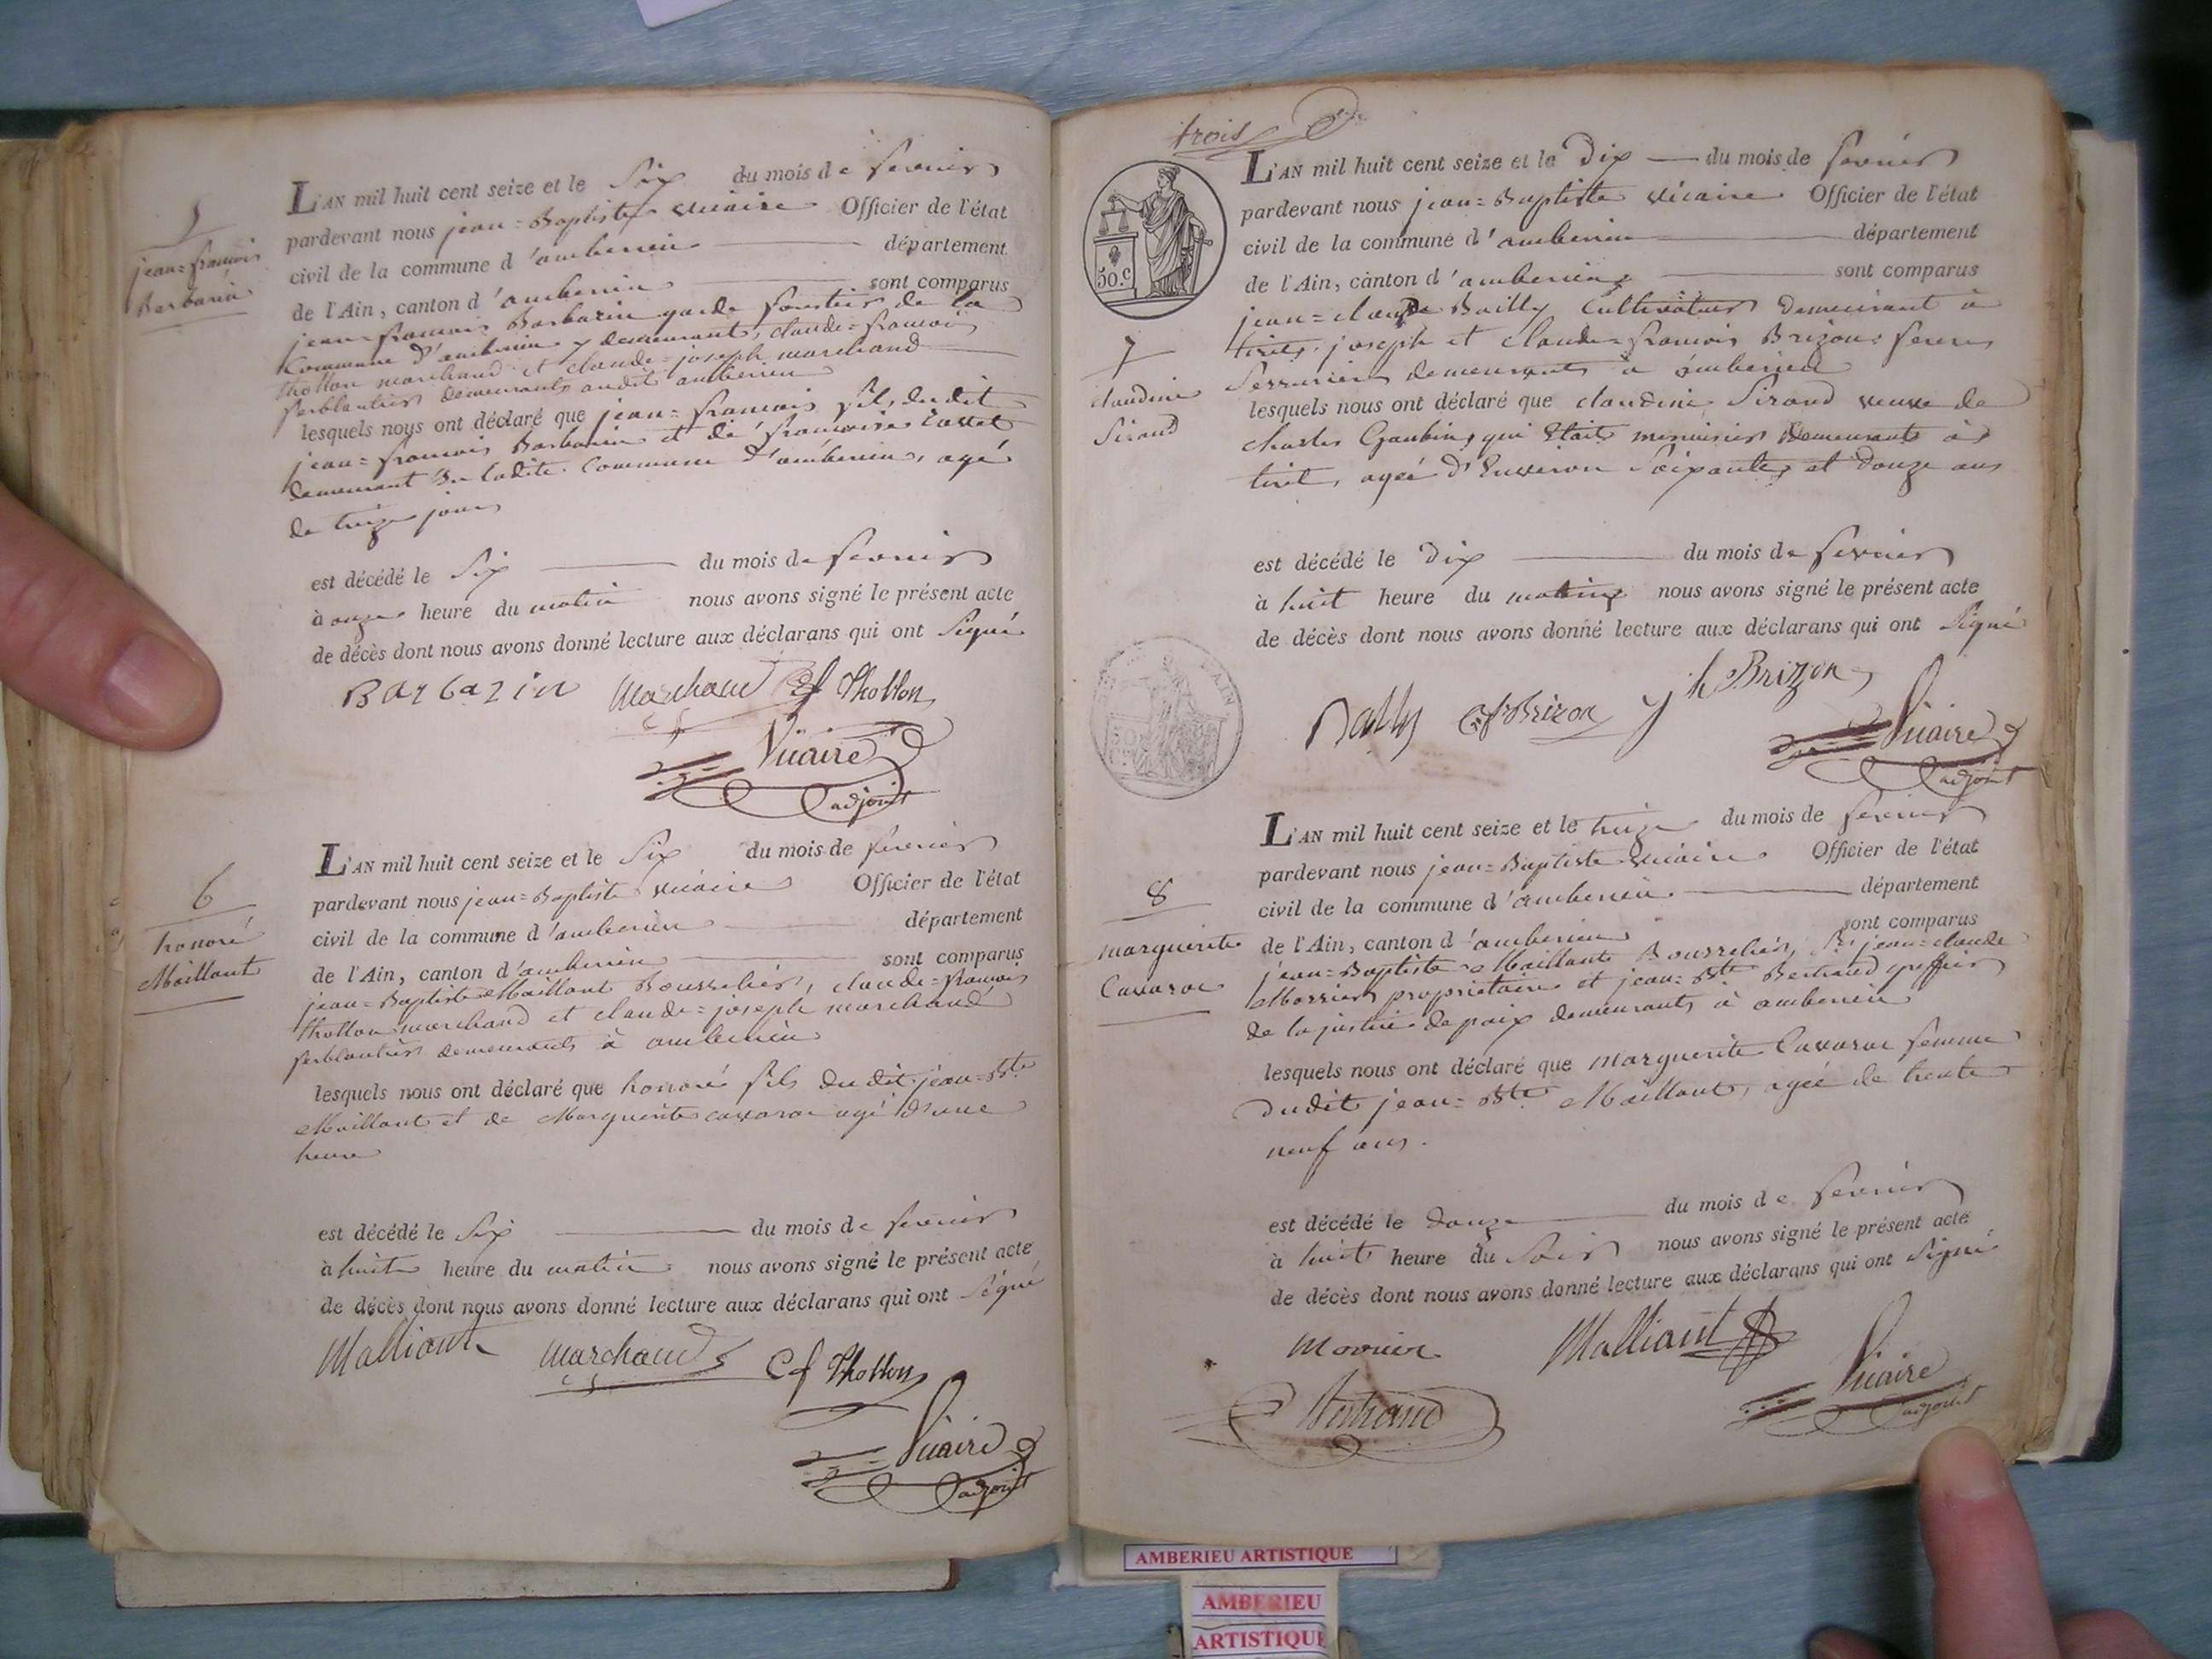 5
jean=françois
Barbarin
L'AN mil huit cent seize et le Six du mois de fevrier
pardevant nous jean=Baptiste vicaire Officier de l'état
civil de la commune d'amberieu département
de l'Ain, canton d'amberieu sont comparus
jean=françois Barbarin garde forestier de la
Commune d'amberieu y demeurant, claude=françois
thollon marchand et claude=joseph marchand
ferblantier demeurants audit amberieu
lesquels nous ont déclaré que jean=françois fils dudit
jean=françois Barbarin et de françoise
demeurant en ladite Commune d'amberieu, agé
de treize jours
est décédé le Six du mois de fevrier
à onze heure du matin nous avons signé le présent acte
de décès dont nous avons donné lecture aux déclarans qui ont Signé
Barbarin marchand cf thollon
Vicaire
adjoint
6
honoré
Maillant
L'AN mil huit cent seize et le Six du mois de fevrier
pardevant nous jean=Baptiste vicaire Officier de l'état
civil de la commune d'amberieu département
de l'Ain, canton d'amberieu sont comparus
jean=Baptiste Maillant Bourrelier, claude=françois
thollon marchand et claude=joseph marchand
ferblantier demeurants à amberieu
lesquels nous ont déclaré que honoré fils dudit jean=Bte
Maillant et de Marguerite cavarac agé d'une
heure
est décédé le Six du mois de fevrier
à huit heure du matin nous avons signé le présent acte
de décès dont nous avons donné lecture aux déclarans qui ont Signé
Malliant marchand Cf thollon
Vicaire
adjoint
trois
50.c
7
claudine
Sirand
L'AN mil huit cent seize et le Dix du mois de fevrier
pardevant nous jean=Baptiste vicaire Officier de l'état
civil de la commune d'amberieu département
de l'Ain, canton d'amberieu sont comparus
jean=claude Bailly Cultivateur demeurant à
tiret, joseph et claude=françois Brizon freres
Serruriers demeurants à amberieu
lesquels nous ont déclaré que claudine Sirand veuve de
charles Gaubin, qui etait menuisier demeurante à
tiret, agée d'Environ Soixante et douze ans
est décédé le dix du mois de fevrier
à huit heure du matin nous avons signé le présent acte
de décès dont nous avons donné lecture aux déclarans qui ont Signé
Bally cf Brizon jh Brizon
Vicaire
adjoint
8
marguerite
Cavarac
L'AN mil huit cent seize et le treize du mois de fevrier
pardevant nous jean=Baptiste vicaire Officier de l'état
civil de la commune d'amberieu département
de l'Ain, canton d'amberieu sont comparus
jean=Baptiste Maillant Bourrelier, Sr jean=claude
propriétaire et jean=Bte Bertrand greffier
de la justice de paix demeurants à amberieu
lesquels nous ont déclaré que marguerite Cavarac femme
dudit jean=Bte Maillant, agée de trente
neuf ans.
est décédé le douze du mois de fevrier
à huit heure du Soir nous avons signé le présent acte
de décès dont nous avons donné lecture aux déclarans qui ont Signé
Malliant
Bertrand
Vicaire
adjoint
AMBERIEU ARTISTIQUE
AMBERIEU
ARTISTIQUE